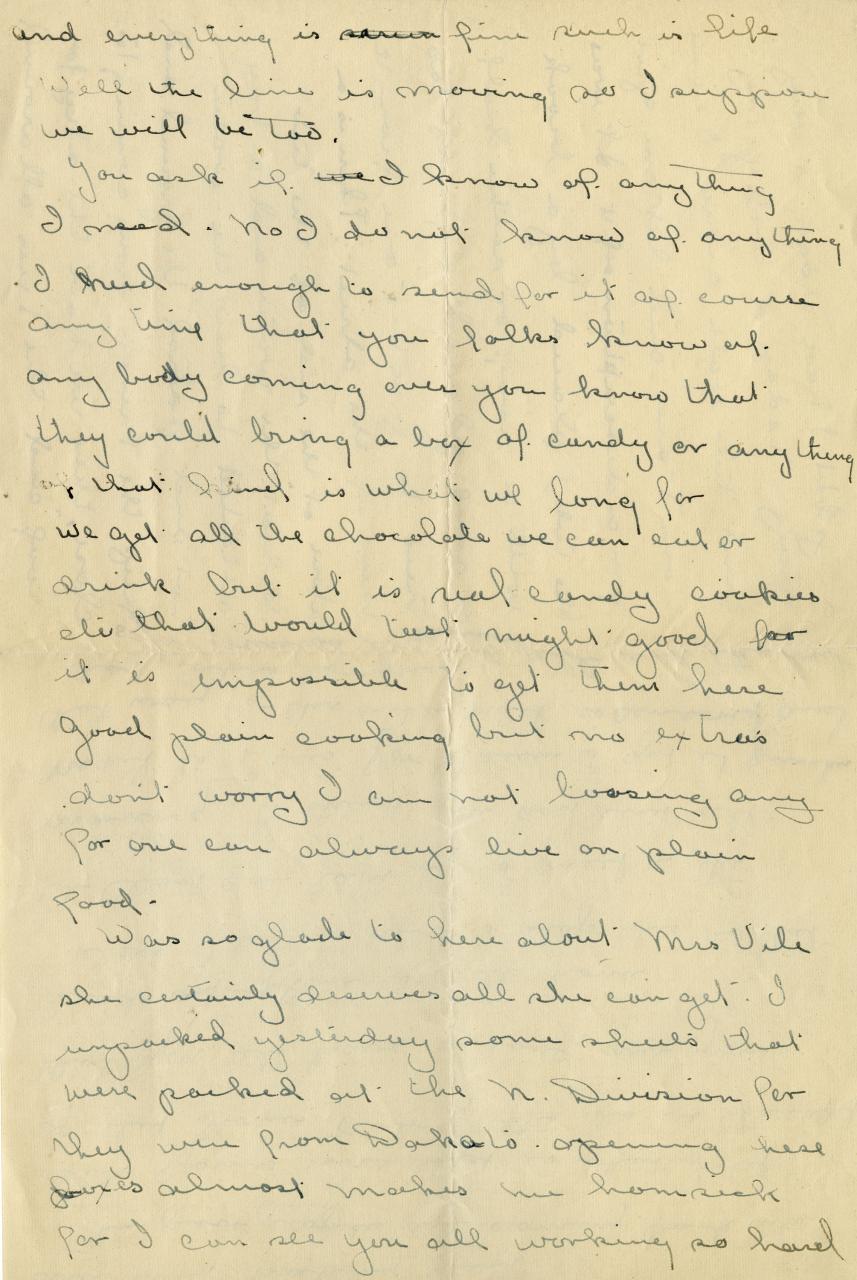 and everything is fine such is life
Well the line is moving so I suppose
we will be too.
You ask if we I know of anything
I need. No I do not know of anything
I need enough to send for it of course
any time that you folks know of
any body coming over you know that
they could bring a box of candy or anything
of that kind is what we long for
we get all the chocolate we can eat or
drink but it is real candy cookies
etc that would tast might good for
it is impossible to get them here
Good plain cooking but no extras
don't worry I am not loosing any
for one can always live on plain
food.
Was so glade to here about Mrs Vile
she certainly deserves all she can get. I
unpacked yesterday some sheets that
were packed at the N. Division for
they were from Dakato. opening hese
boxes almost makes me homsick
for I can see you all working so hard